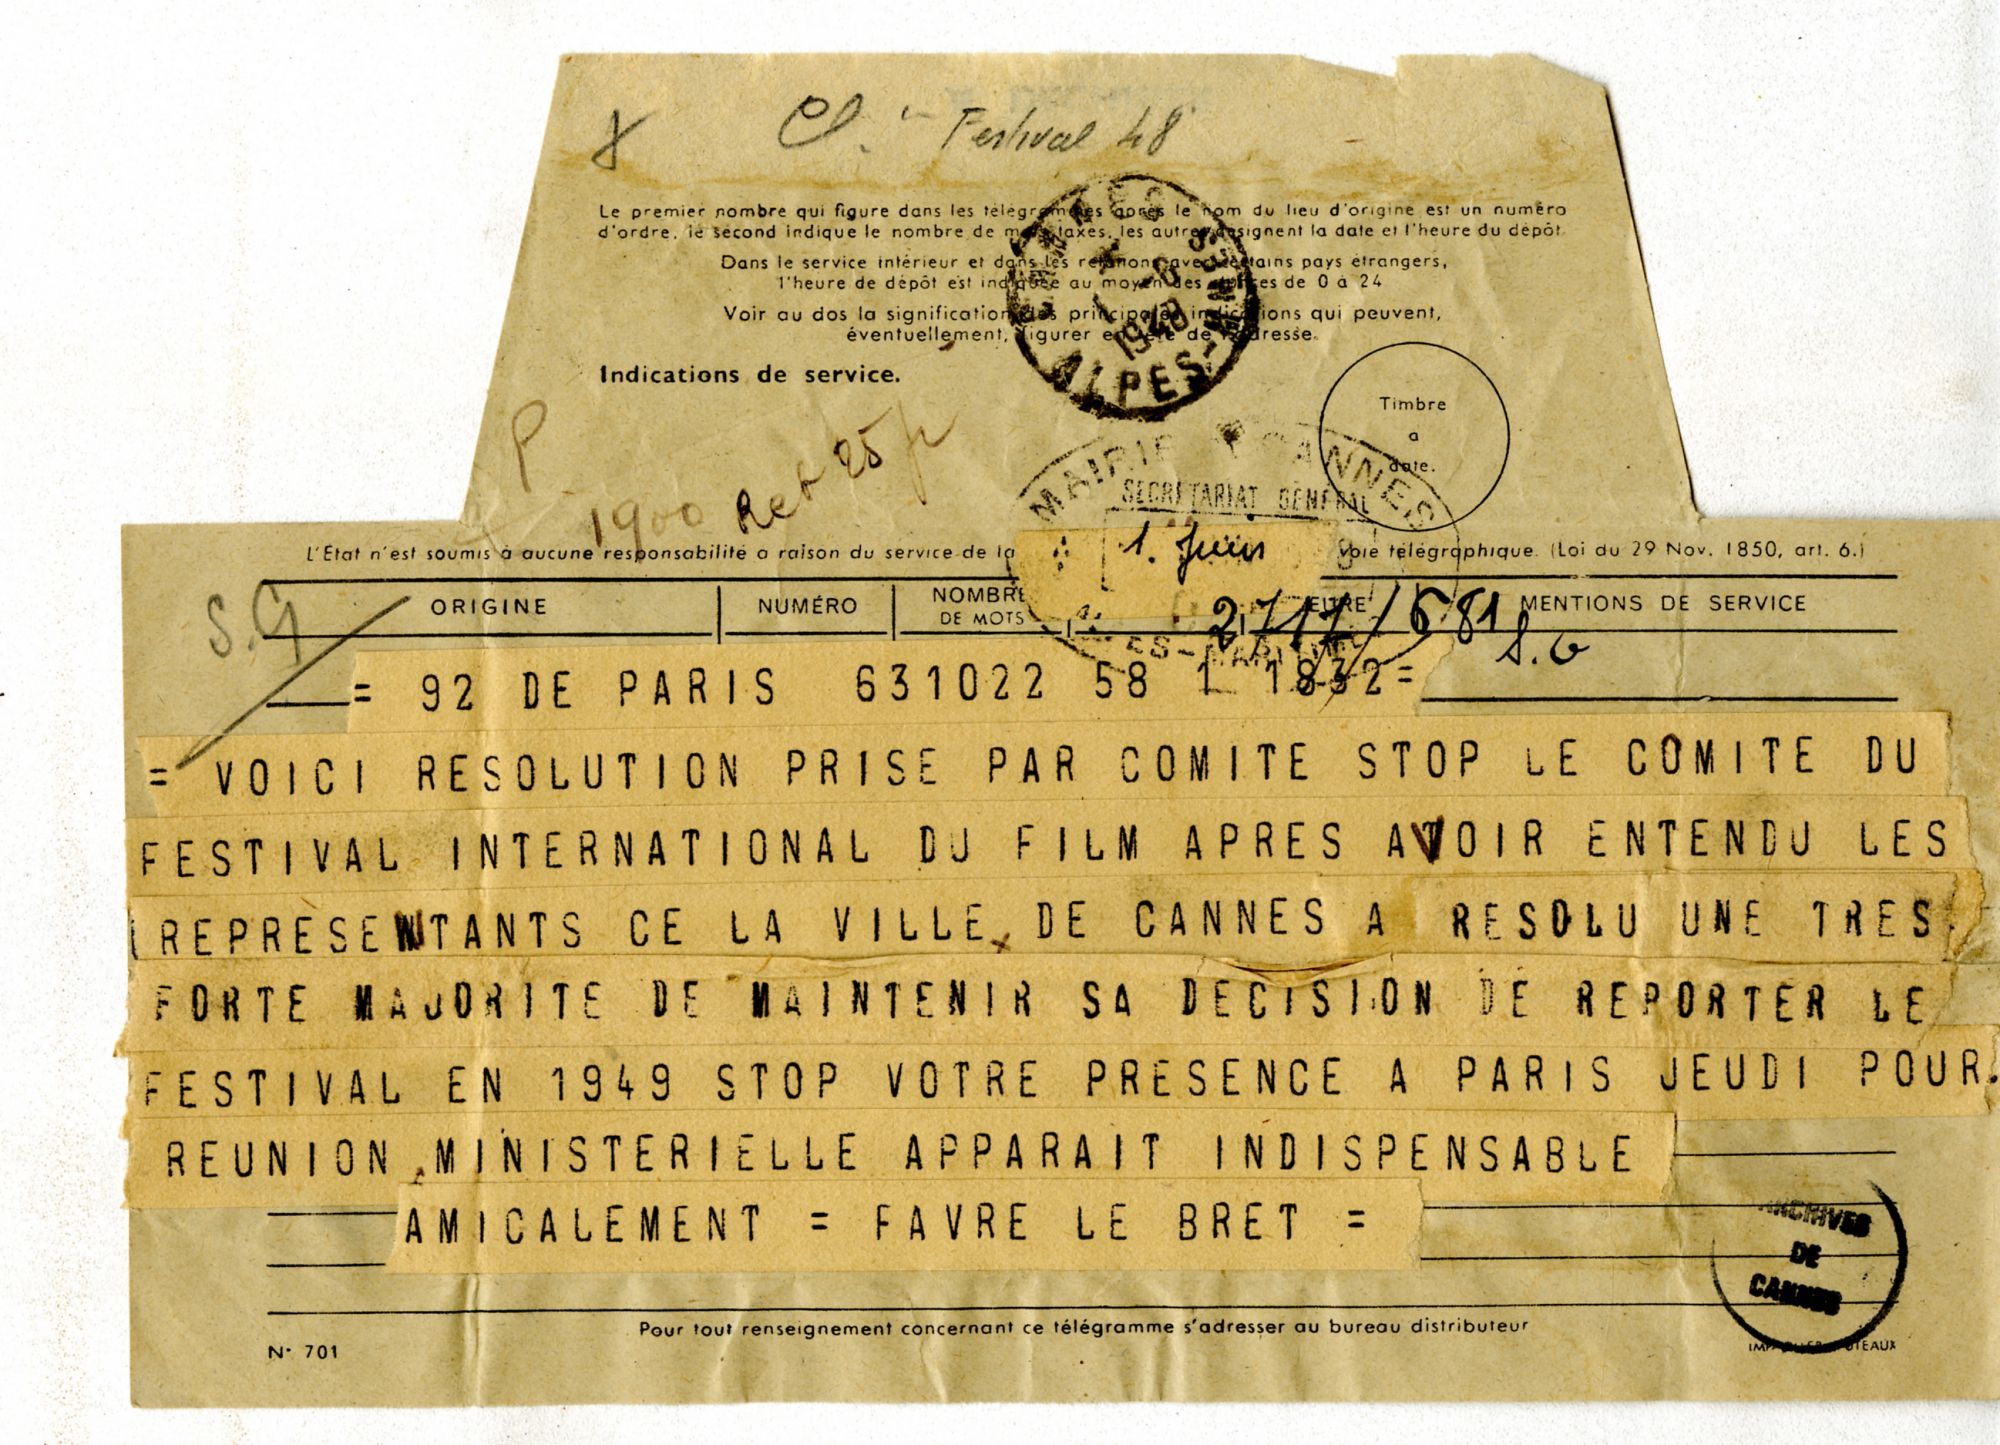 Cl. Festival 48
Le premier nombre qui figure dans les télégrammes après le nom du lieu d'origine est un numéro
d'ordre, le second indique le nombre de mots taxés, les autres désignent la date et l'heure du dépôt
Dans le service intérieur et dans les relations avec certains pays étrangers,
l'heure de dépôt est indiquée au moyen des chiffres de 0 à 24
Voir au dos la signification des principales indications qui peuvent,
éventuellement, figurer en tête de l'adresse.
CANNES
1940
ALPES-MMES
Indications de service.
Timbre
à
date.
P
1900 Ret 25
MAIRIE DE CANNES
SECRÉTARIAT GÉNÉRAL
1. Juin
L'État n'est soumis à aucune responsabilité à raison du service de la voie télégraphique. (Loi du 29 Nov. 1850, art. 6.)
S.G
ORIGINE NUMÉRO NOMBRE DE MOTS MENTIONS DE SERVICE
2717/681
S.G
= 92 DE PARIS 631022 58 1 1832=
= VOICI RESOLUTION PRISE PAR COMITE STOP LE COMITE DU
FESTIVAL INTERNATIONAL DU FILM APRES AVOIR ENTENDU LES
REPRESENTANTS CE LA VILLE DE CANNES A RESOLU UNE TRES
FORTE MAJORITE DE MAINTENIR SA DECISION DE REPORTER LE
FESTIVAL EN 1949 STOP VOTRE PRESENCE A PARIS JEUDI POUR
REUNION MINISTERIELLE APPARAIT INDISPENSABLE
AMICALEMENT = FAVRE LE BRET =
ARCHIVES
DE
CANNES
Pour tout renseignement concernant ce télégramme s'adresser au bureau distributeur
N° 701